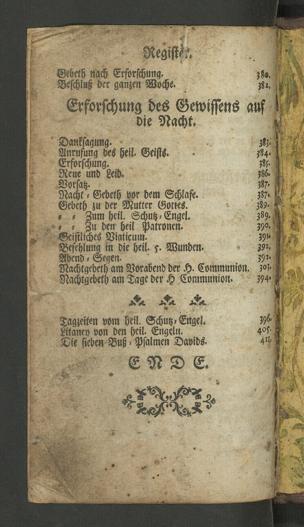 Register.
Gebeth nach Erforschung. 380.
Beschluß der ganzen Woche. 382.
Erforschung des Gewissens auf
die Nacht.
Danksagung. 383.
Anrufung des heil. Geists. 384.
Erforschung. 385.
Reue und Leid. 386.
Vorsatz. 387.
Nacht-Gebeth vor dem Schlafe. 387.
Gebeth zu der Mutter Gottes. 389.
„ „ Zum heil. Schutz-Engel. 389.
„ „ Zu den heil Patronen. 390.
Geistliches Viaticum. 391.
Befehlung in die heil. 5. Wunden. 392.
Abend-Segen. 392.
Nachtgebeth am Vorabend der H. Communion. 393.
Nachtgebeth am Tage der H Communion. 394.
Tagzeiten vom heil. Schutz-Engel. 396.
Litaney von den heil. Engeln. 405.
Die sieben Buß-Psalmen Davids.
ENDE.